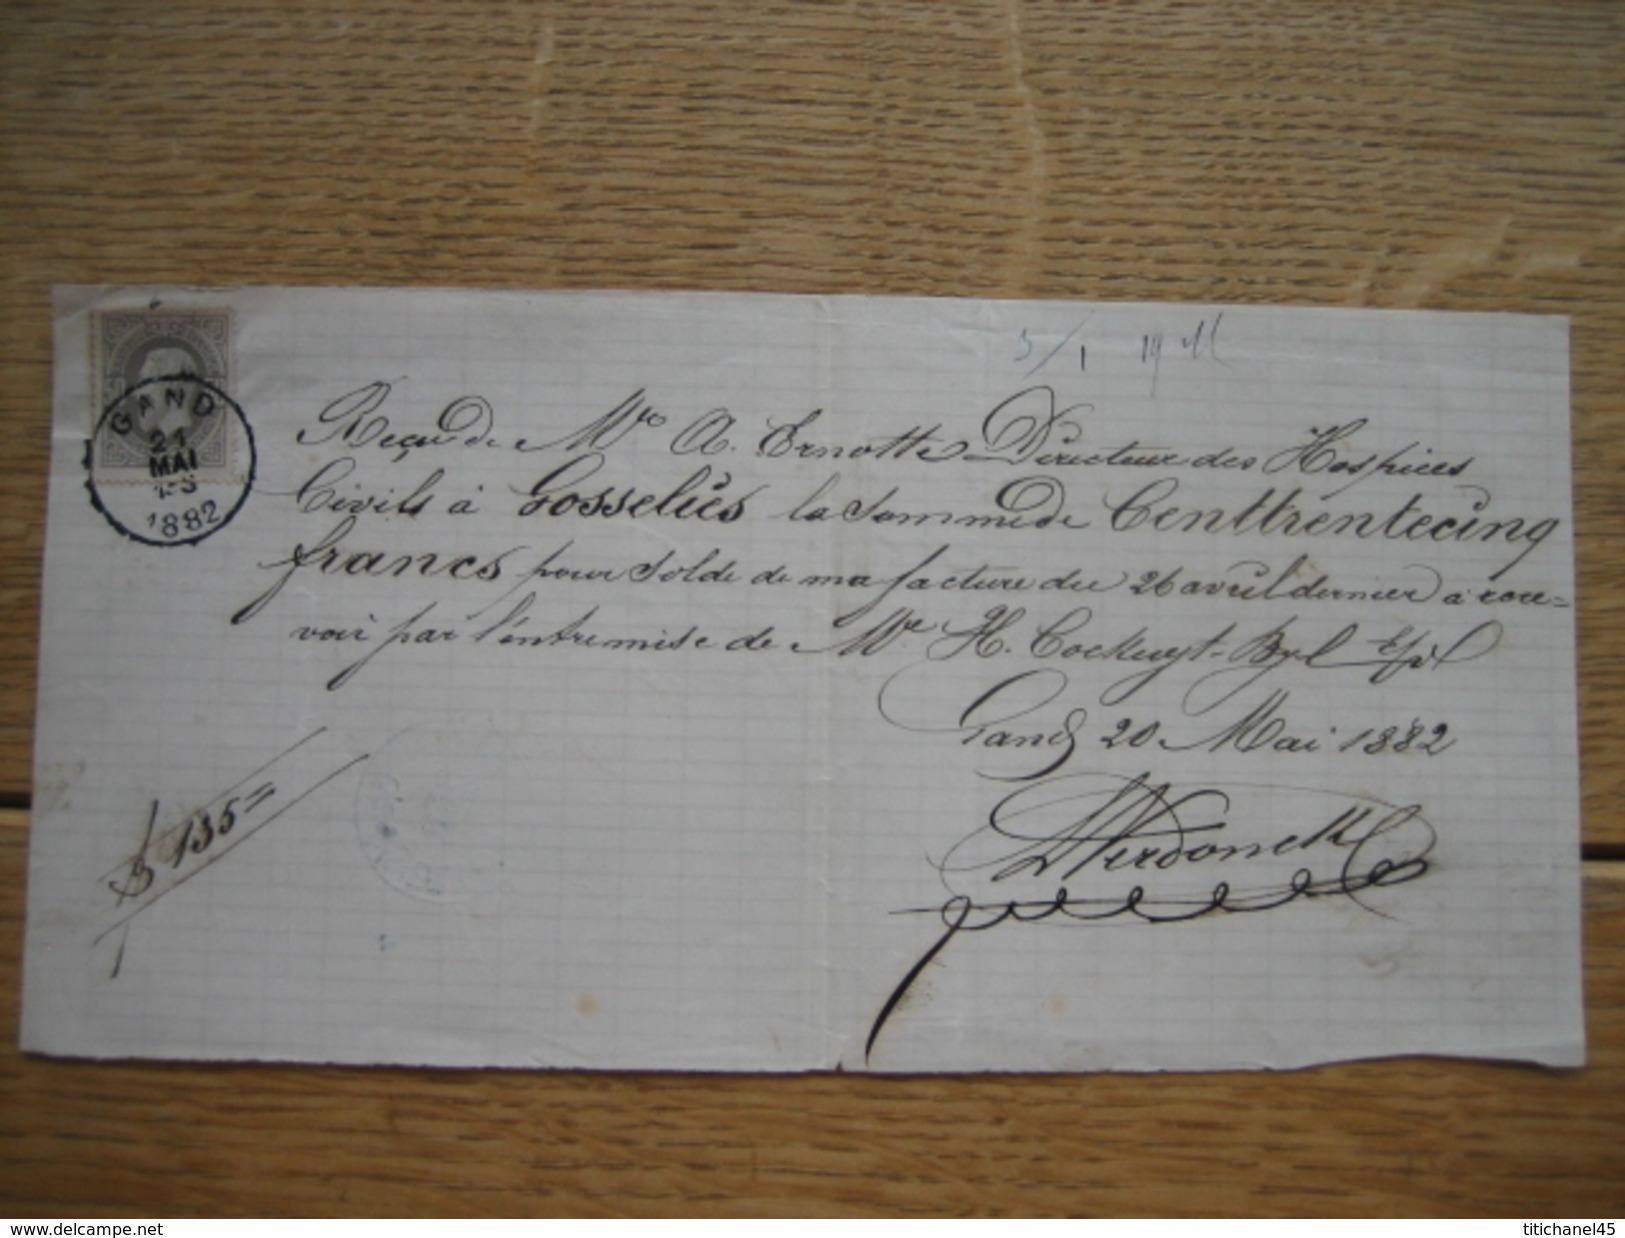 GAND
21
MAI
1882
5/1 19
Reçu de Mr A. Ernotte Directeur des Hospices
Civils à Gosseliès la Somme de Centtrentecinq
francs pour solde de ma facture du 26 avril dernier à rece=
voir par l'entremise de Mr H. Cockuyt-Byl
Gand 20 Mai 1882
Verdonck
135
www.delcampe.net
titichanel45